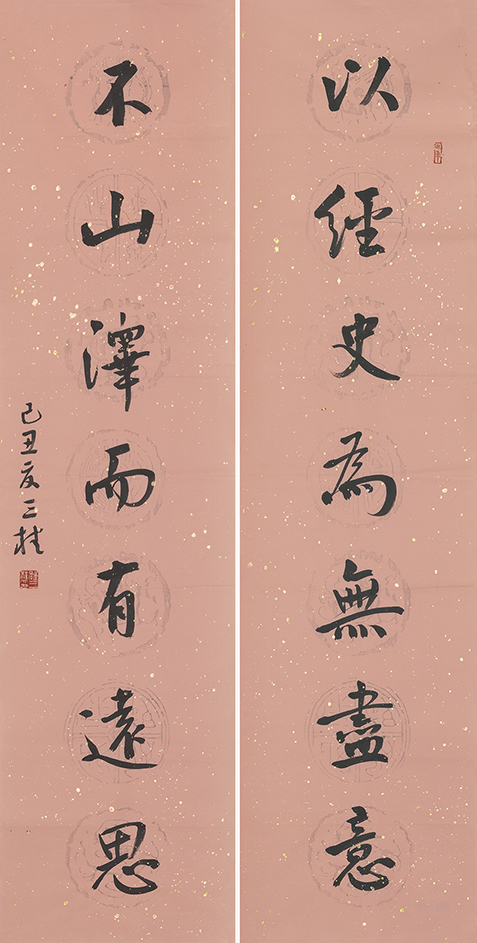 以經史為無盡意
不山澤而有遠思
己丑夏三桂